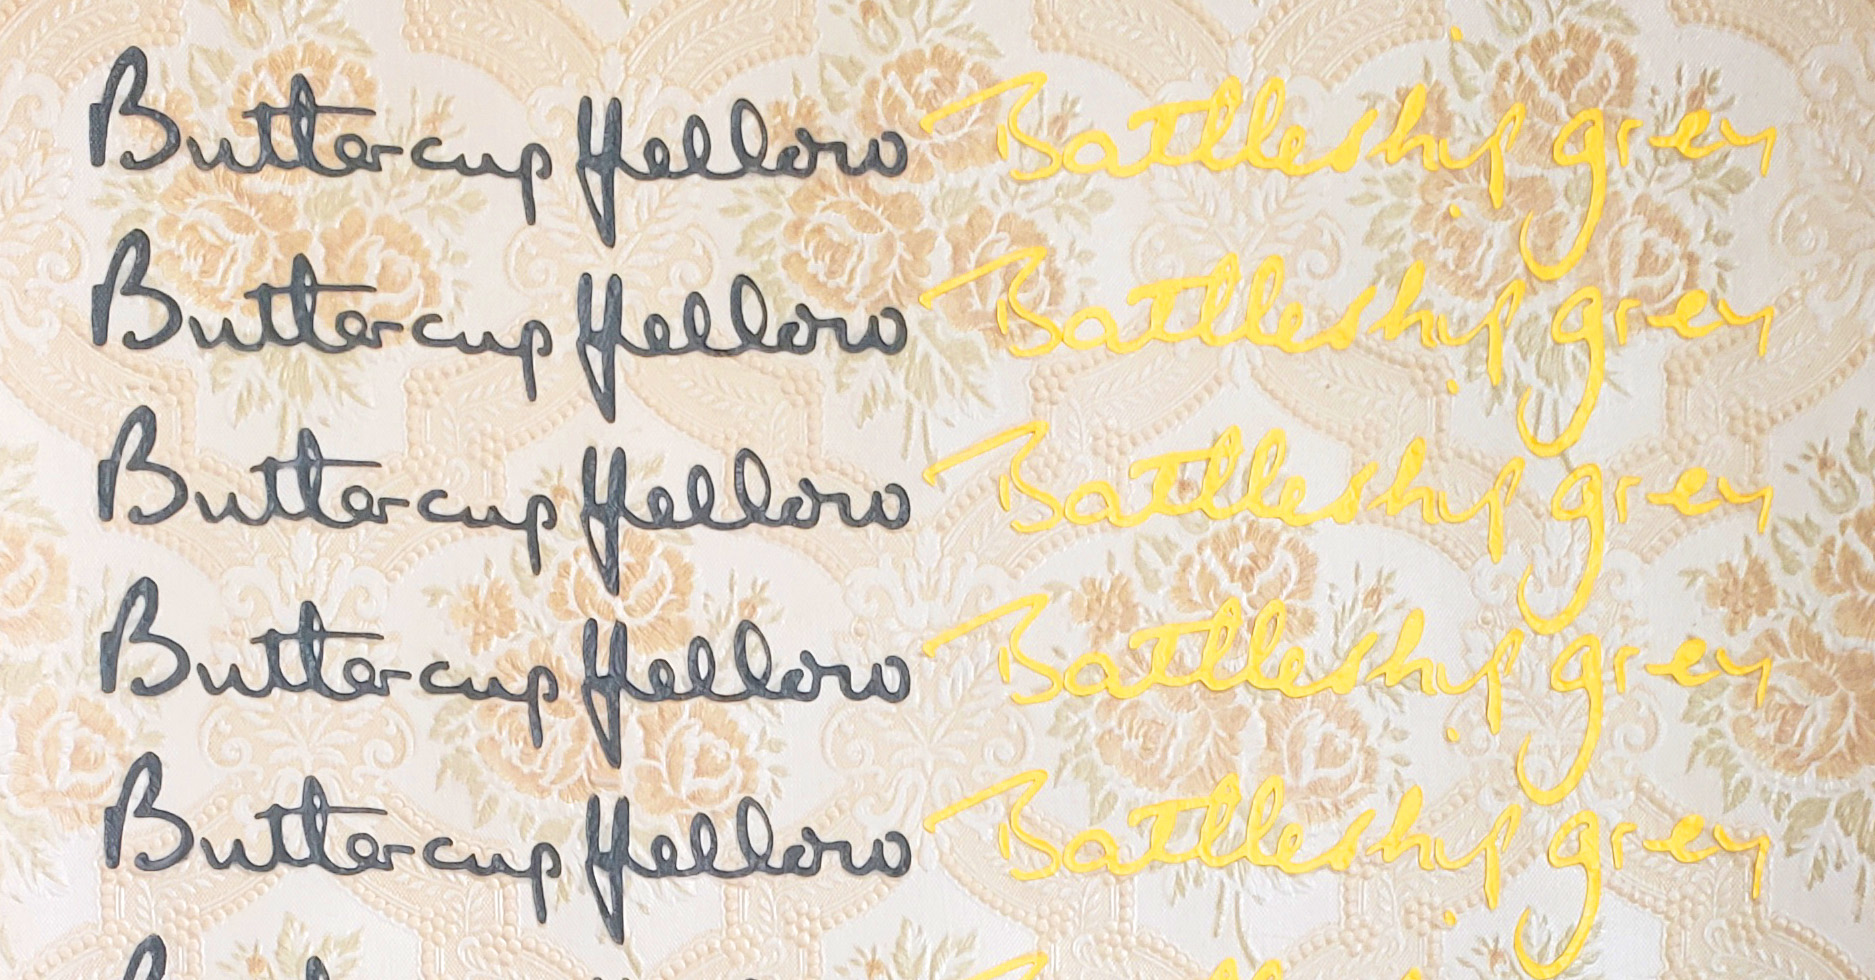 Buttercup Yellow Battleship grey
Buttercup Yellow Battleship grey
Buttercup Yellow Battleship grey
Buttercup Yellow Battleship grey
Buttercup Yellow Battleship grey